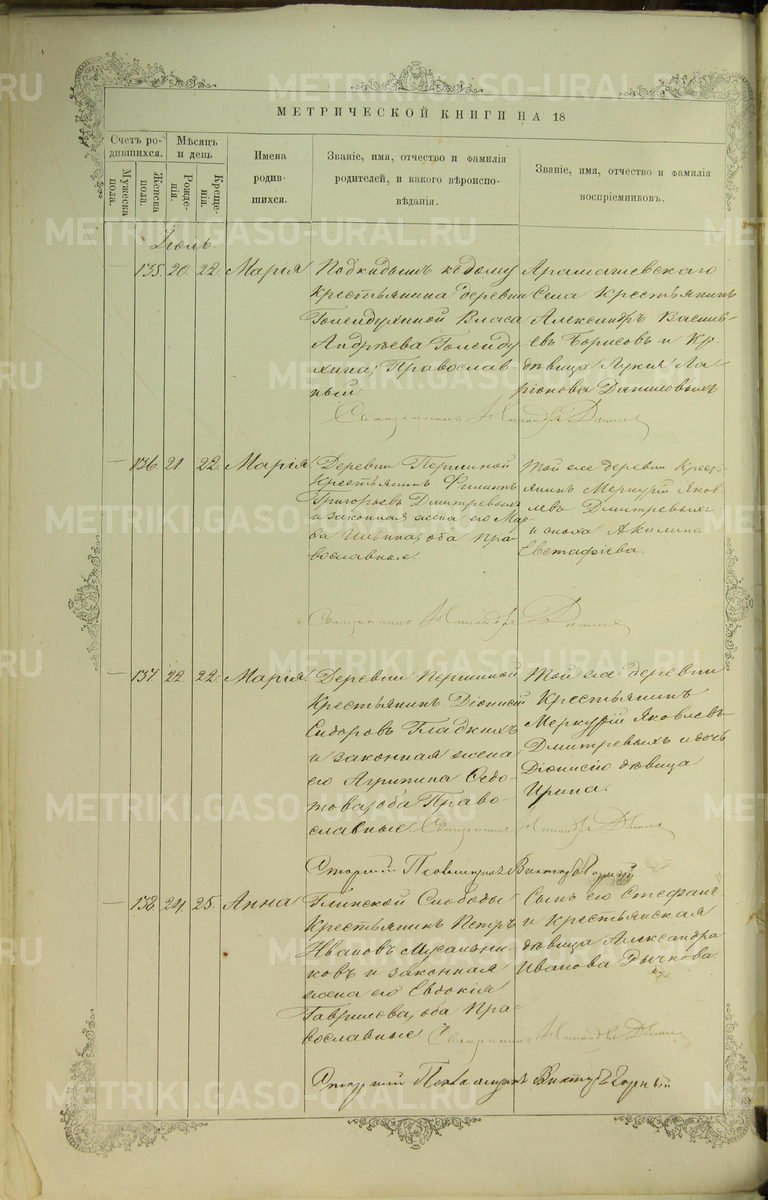 МЕТРИЧЕСКОЙ КНИГИ НА 18
Счетъ родившихся.
Мужеска пола.
Женска пола.
Мѣсяцъ и день
Рожденія.
Крещенія.
Имена родившихся.
Званіе, имя, отчество и фамилія родителей, и какого вѣроисповѣданія.
Званіе, имя, отчество и фамилія воспріемниковъ.
Іюль.
135. 20. 22. Марія.
Подкидышъ къ дому
крестьянина деревни
Голендухиной Власа
Андрѣева Голенду
хина; Православ
ный.
Арамашевскаго
Села Крестьянинъ
Александръ Василь-
евъ Борисовъ и Кр.
дѣвица Лукія Ла-
ріонова Даниловыхъ
Священникъ
136. 21. 22. Марія.
Деревни Першиной
Крестьянинъ Филиппъ
Григорьевъ Дмитревыхъ
и законная жена его Мар-
Ильина; оба пра-
вославные.
Той же деревни Крест-
янинъ Меркурій Яков-
левъ Дмитревыхъ
и сноха Акилина
Евстафіева.
Священникъ
137. 22. 22. Марія.
Деревни Першиной
Крестьянинъ Діонисій
Сидоровъ Гладкихъ
и законная жена
его Агрипина Ѳедо-
това; оба Право-
славные.
Той же деревни
Крестьянинъ
Меркурій Яковлевъ
Дмитревыхъ и дочь
Діонисію дѣвица
Ирина.
Священникъ
Викторъ
138. 24. 25. Анна
Глинской Слободы
Крестьянинъ Петръ
Ивановъ Мусальни-
ковъ и законная
жена его Евдокія
Гаврилова, оба Пра-
вославные.
Сынъ его Стефанъ
и крестьянская
дѣвица Александра
Иванова Рычкова.
Священникъ
Викторъ
METRIKI.GASO-URAL.RU